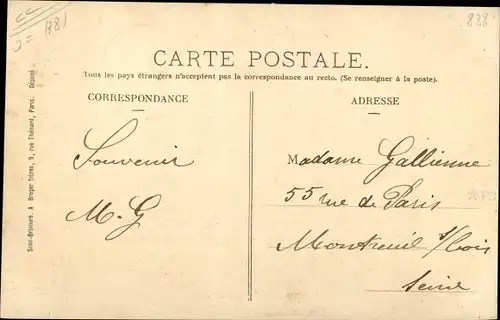 (78)
838
CARTE POSTALE.
Tous les pays étrangers n'acceptent pas la correspondance au recto. (Se renseigner à la poste).
CORRESPONDANCE
ADRESSE
Souvenir
M. G
Madame Gallienne
55 rue de Paris
Montreuil s/bois
Seine
Simi-Bromure. A Breger frères, 9, rue Thénard, Paris. Déposé